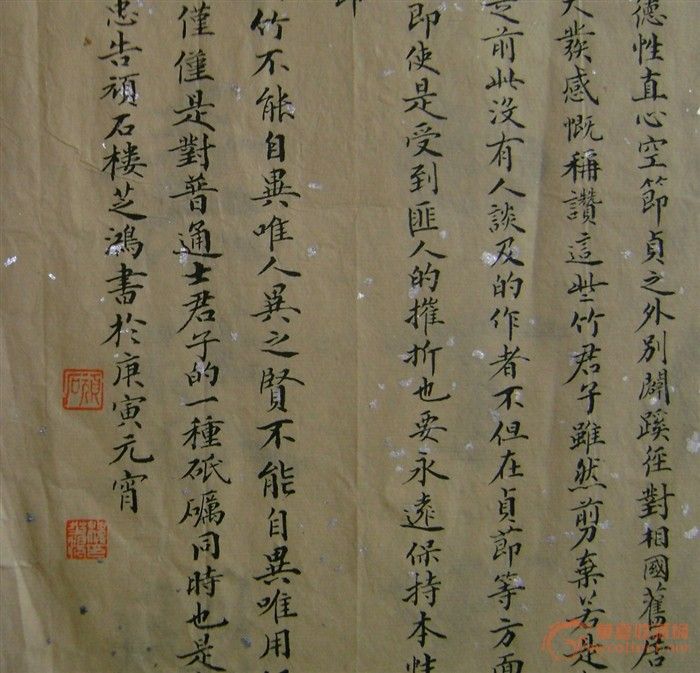 德性直心空節貞之外別闢蹊徑對相國舊居
大發感慨稱讚這些竹君子雖然剪棄若是
是前此沒有人談及的作者不但在貞節等方面
即使是受到匪人的摧折也要永遠保持本性
竹不能自異唯人異之賢不能自異唯用
僅僅是對普通士君子的一種砥礪同時也是
忠告頑石樓芝鴻書於庚寅元宵
頑石